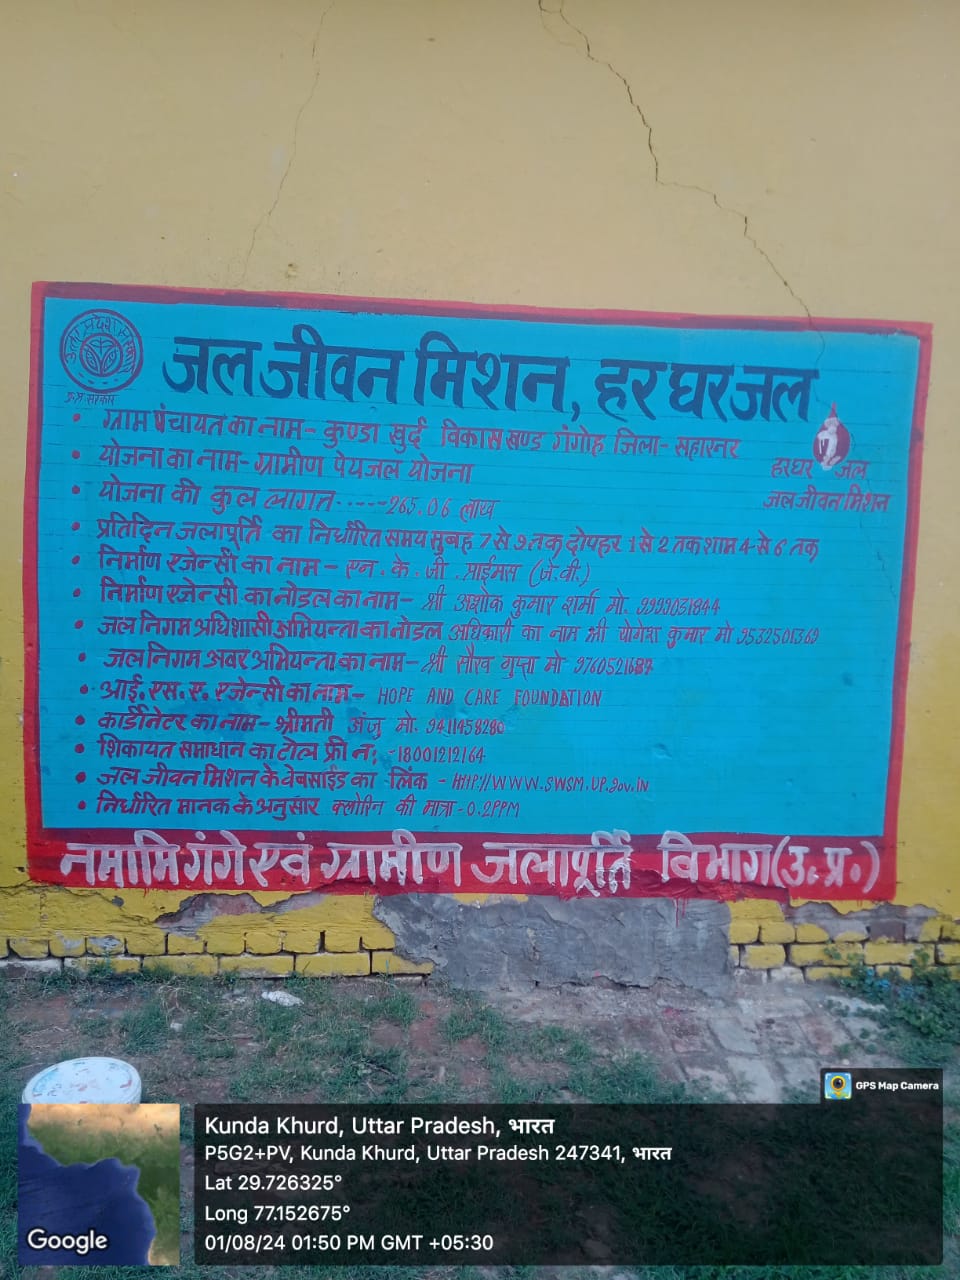 उत्तर प्रदेश सरकार
उ.प्र. सरकार
जल जीवन मिशन, हर घर जल
• ग्राम पंचायत का नाम- कुण्डा खुर्द विकास खण्ड गंगोह जिला- सहारनर
हर घर जल
जल जीवन मिशन
• योजना का नाम- ग्रामीण पेयजल योजना
• योजना की कुल लागत-----265.06 लाख
• प्रतिदिन जलापूर्ति का निर्धारित समय सुबह 7 से 9 तक दोपहर 1 से 2 तक शाम 4 से 6 तक
• निर्माण एजेन्सी का नाम - एन. के. जी. प्राईमस (जे.वी.)
• निर्माण एजेन्सी का नोडल का नाम- श्री अशोक कुमार शर्मा मो. 9999031844
• जल निगम अधिशासी अभियन्ता का नोडल अधिकारी का नाम श्री योगेश कुमार मो 9532501369
• जल निगम अवर अभियन्ता का नाम- श्री सौरव गुप्ता मो
• आई. एस. ए. एजेन्सी का नाम- HOPE AND CARE FOUNDATION
• कार्डीनेटर का नाम- श्रीमती अंजु मो. 9411458280
• शिकायत समाधान का टोल फ्री न: -18001212164
• जल जीवन मिशन के वेबसाईड का लिंक - HTTP//WWW.SWSM.UP.gov.iN
• निर्धारित मानक के अनुसार क्लोरिन की मात्रा-0.2PPM
नमामि गंगे एवं ग्रामीण जलापूर्ति विभाग (उ.प्र.)
GPS Map Camera
Kunda Khurd, Uttar Pradesh, भारत
P5G2+PV, Kunda Khurd, Uttar Pradesh 247341, भारत
Lat 29.726325°
Long 77.152675°
01/08/24 01:50 PM GMT +05:30
Google